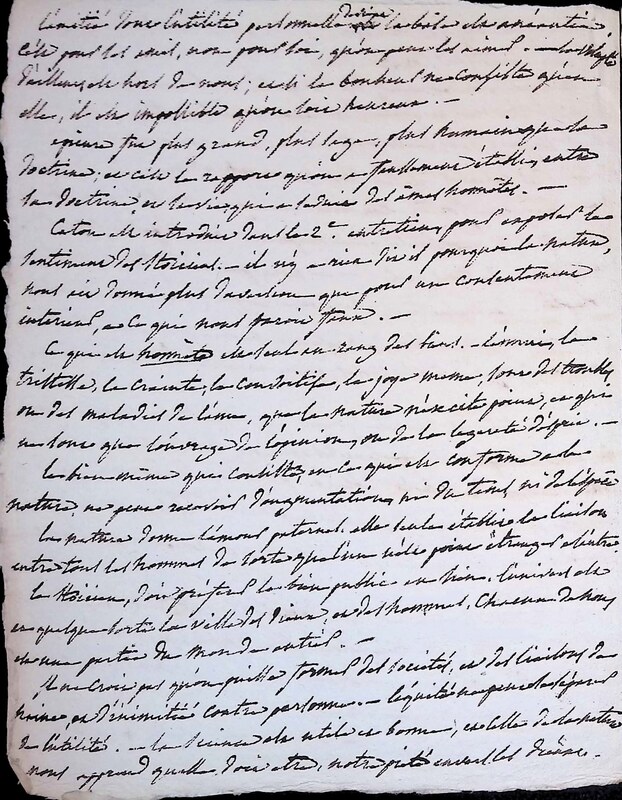 l'amitié dont l'utilité personnelle seroit la base est anéantie
c'est pour les amis, non pour soi, qu'on peut les aimer. — la volupté
d'ailleurs est hors de nous; et si le bonheur ne consiste qu'en
elle, il est impossible qu'on soit heureux. —
épicure fut plus grand, plus sage, plus humain que la
doctrine, et c'est le rapport qu'on a faussement établi entre
la doctrine et la vie qui a séduit des âmes honnêtes. —
Caton est introduit dans le 2e. entretien, pour exposer le
sentiment des Stoïciens. — il n'y a rien dit il pourquoi la nature,
nous ait donné plus d'aversion que pour un contentement
intérieur, et ce qui nous paroit faux. —
Ce qui est honnête est seul au rang des biens. — l'ennui, la
tristesse, la crainte, la cupidité, la joye meme, sont des troubles,
ou des maladies de l'ame, que la nature n'excite point, et qui
ne sont que l'ouvrage de l'opinion, ou de la legereté d'esprit. —
le bien même qui consiste, en ce qui est conforme a la
nature, ne peut recevoir d'augmentation, ni du tems, ni de la durée
la nature donne l'amour paternel. elle seule établit la liaison
entre tous les hommes de sorte qu'aucun n'est point étranger à l'autre
le Stoïcien, doit préférer le bien public au sien. l'univers est
en quelque sorte la ville des Dieux, et des hommes. Chacun de nous
est une partie du monde entier. —
Il ne croit pas qu'on puisse former des societés, et des liaisons de
haine et d'inimitié contre personne. — l'équité ne peut se séparer
de l'utilité. — la science est utile et bonne, et celle de la nature
nous apprend quelle doit etre, notre piété envers les dieux. —